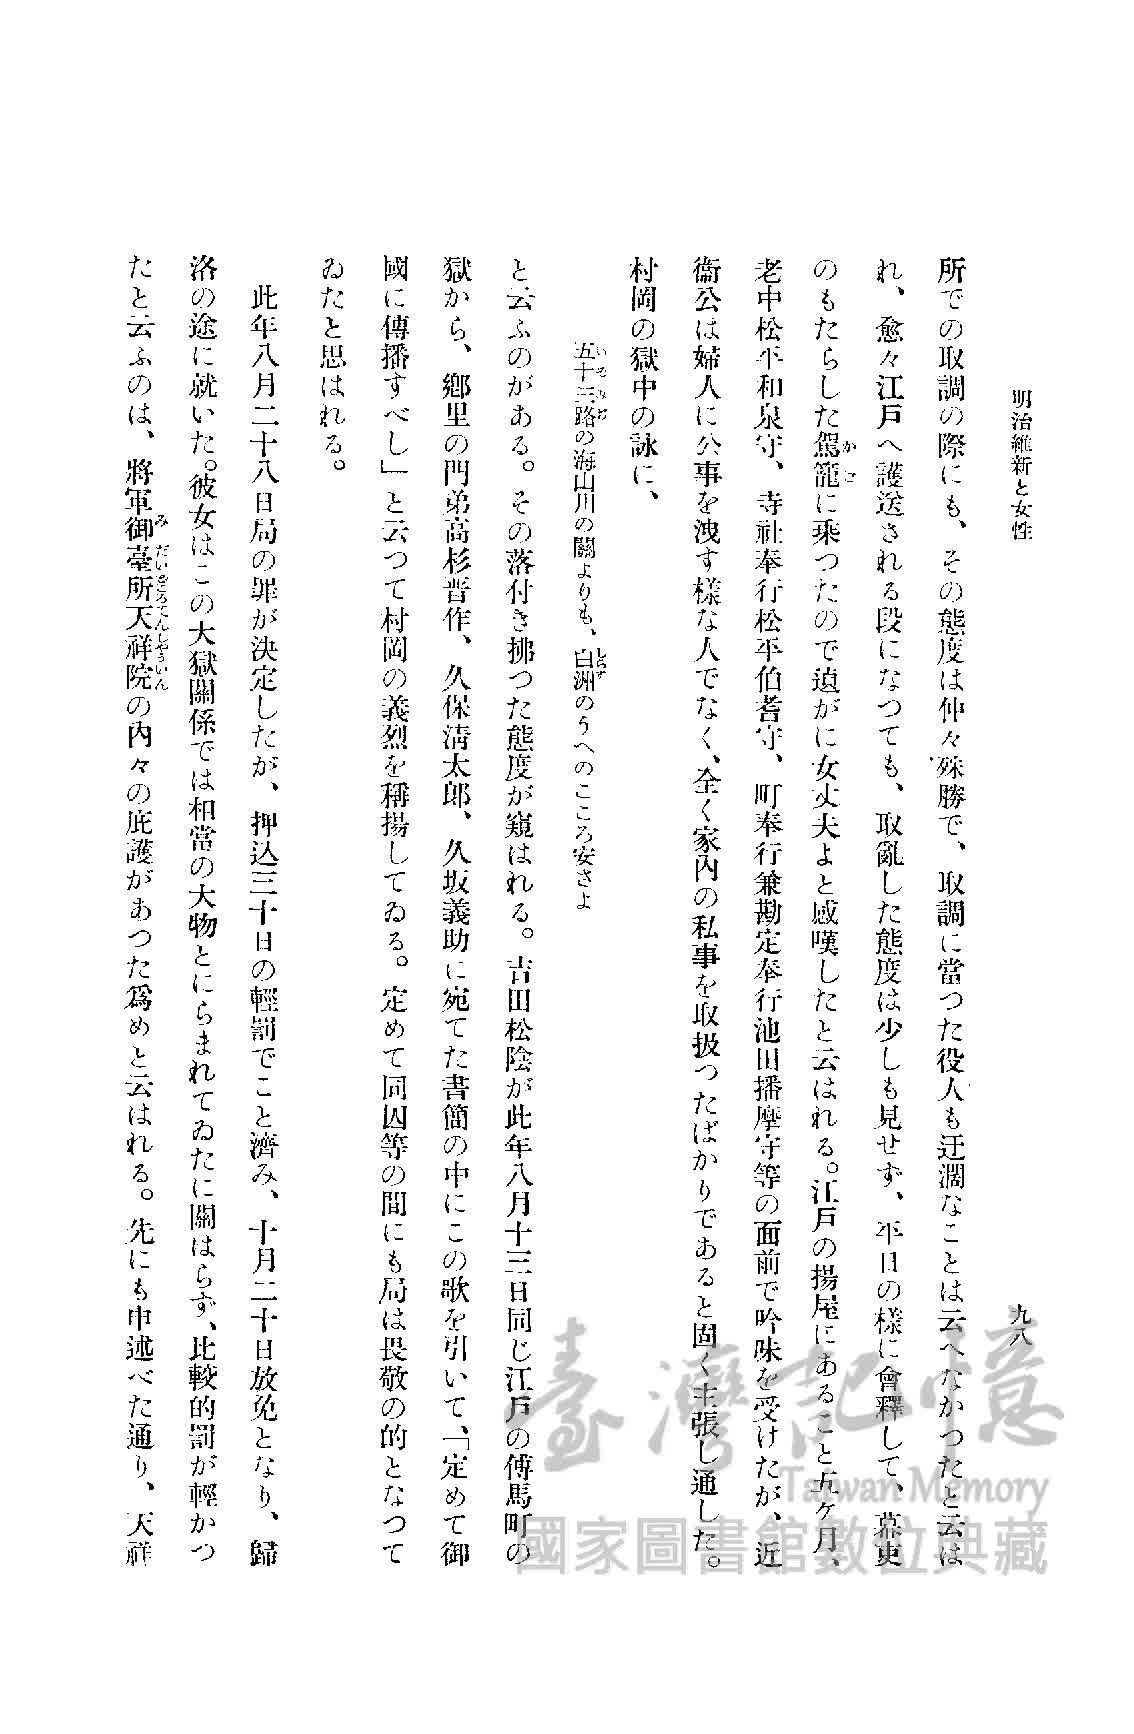 明治維新と女性
九八
所での取調の際にも、その態度は仲々殊勝で、取調に當つた役人も迂濶なことは云へなかつたと云は
れ、愈々江戸へ護送される段になつても、取亂した態度は少しも見せず、平日の様に會釋して、幕吏
のもたらした駕籠に乗つたので遉がに女丈夫よと感嘆したと云はれる。江戸の揚屋にあること五ケ月、
老中松平和泉守、寺社奉行松平伯耆守、町奉行兼勘定奉行池田播摩守等の面前で吟味を受けたが、近
衞公は婦人に公事を洩す様な人でなく、全く家內の私事を取扱つたばかりであると固く主張し通した。
村岡の獄中の詠に、
五十三路の海山川の關よりも、白洲のうへのこころ安さよ
と云ふのがある。その落付き拂つた態度が窺はれる。吉田松陰が此年八月十三日同じ江戸の傳馬町の
獄から、鄕里の門弟高杉晋作、久保淸太郎、久坂義助に宛てた書簡の中にこの歌を引いて、「定めて御
國に傳播すべし」と云つて村岡の義烈を稱揚してゐる。定めて同囚等の間にも局は畏敬の的となつて
ゐたと思はれる。
此年八月二十八日局の罪が決定したが、押込三十日の輕罰でこと濟み、十月二十日放免となり、歸
洛の途に就いた。彼女はこの大獄關係では相當の大物とにらまれてゐたに關はらず、比較的罰が輕かつ
たと云ふのは、將軍御臺所天祥院の內々の庇護があつた爲めと云はれる。先にも申述べた通り、天祥
臺灣記憶
Taiwan Memory
國家圖書館數位典藏